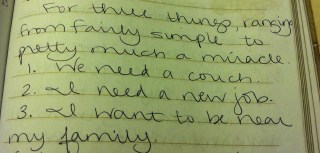 For three things, ranging
from fairly simple to
pretty much a miracle.
1. We need a couch.
2. I need a new job.
3. I want to be near
my family.